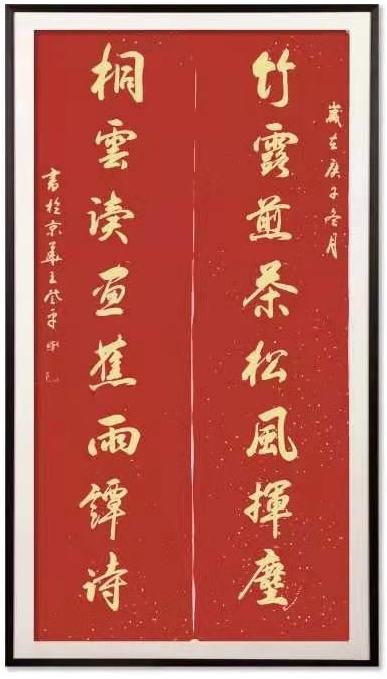 歲在庚子冬月
竹露煎茶松風揮麈
桐雲读画蕉雨譚诗
書於京華王